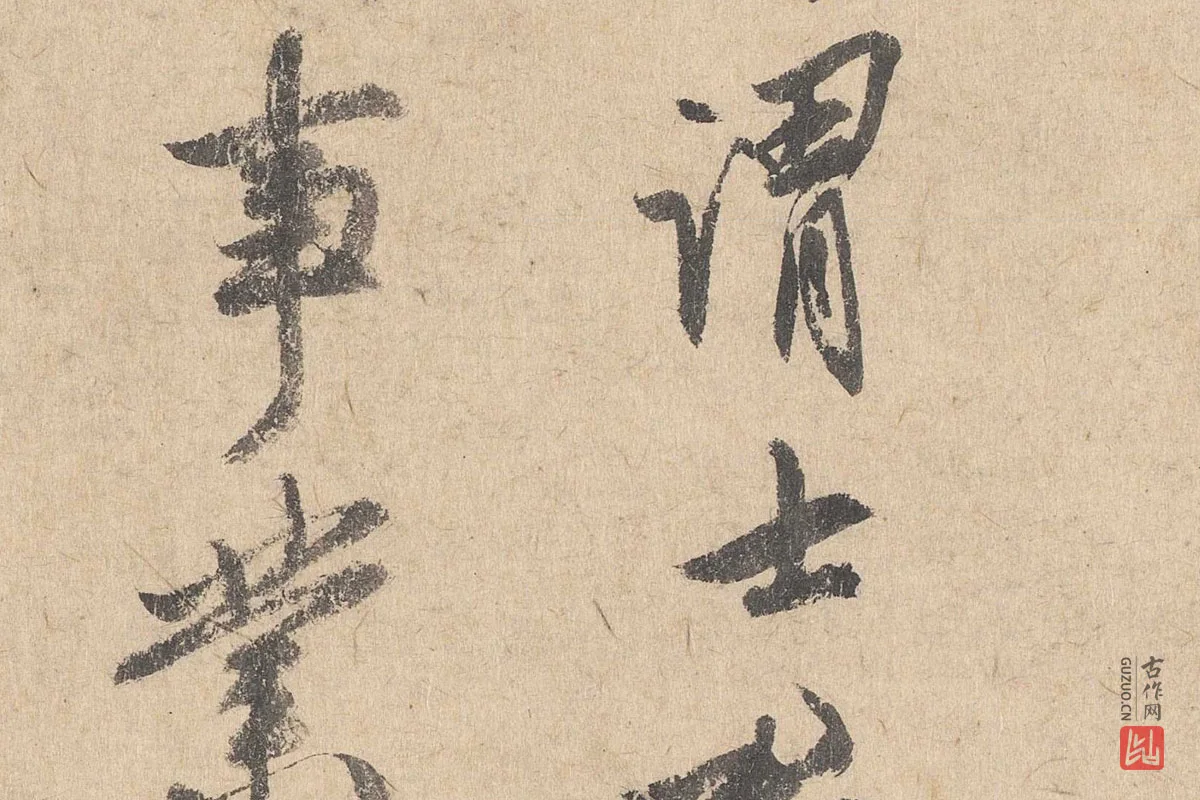 謂士
事業
古作网
GUZUO.CN